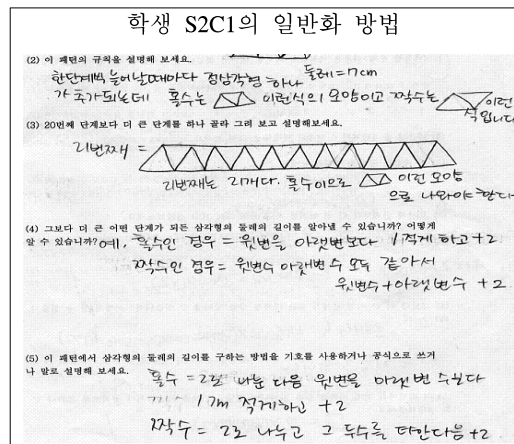 학생 S2C1의 일반화 방법
(2) 이 패턴의 규칙을 설명해 보세요.
한단계씩 늘어날때마다 정삼각형 하나 둘레=7cm
가 추가되는데 홀수는 이런식의 모양이고 짝수는 이런
식입니다
(3) 20번째 단계보다 더 큰 단계를 하나 골라 그려 보고 설명해보세요.
21번째 =
21번째는 21개다. 홀수이므로 이런 모양
으로 나와야 한다
(4) 그보다 더 큰 어떤 단계가 되든 삼각형의 둘레의 길이를 알아낼 수 있습니까? 어떻게
알 수 있습니까? 예, 홀수인 경우 = 윗변을 아랫변보다 1적게 하고 +2
짝수인 경우 = 윗변수 아랫변 수 모두 같아서
윗변수+아랫변수 +2
(5) 이 패턴에서 삼각형의 둘레의 길이를 구하는 방법을 기호를 사용하거나 공식으로 쓰거
나 말로 설명해 보세요.
홀수 = 2로 나눈 다음 윗변을 아랫변 수보다
1개 적게하고 +2
짝수 = 2로 나누고 그 두수를 더한다음 +2